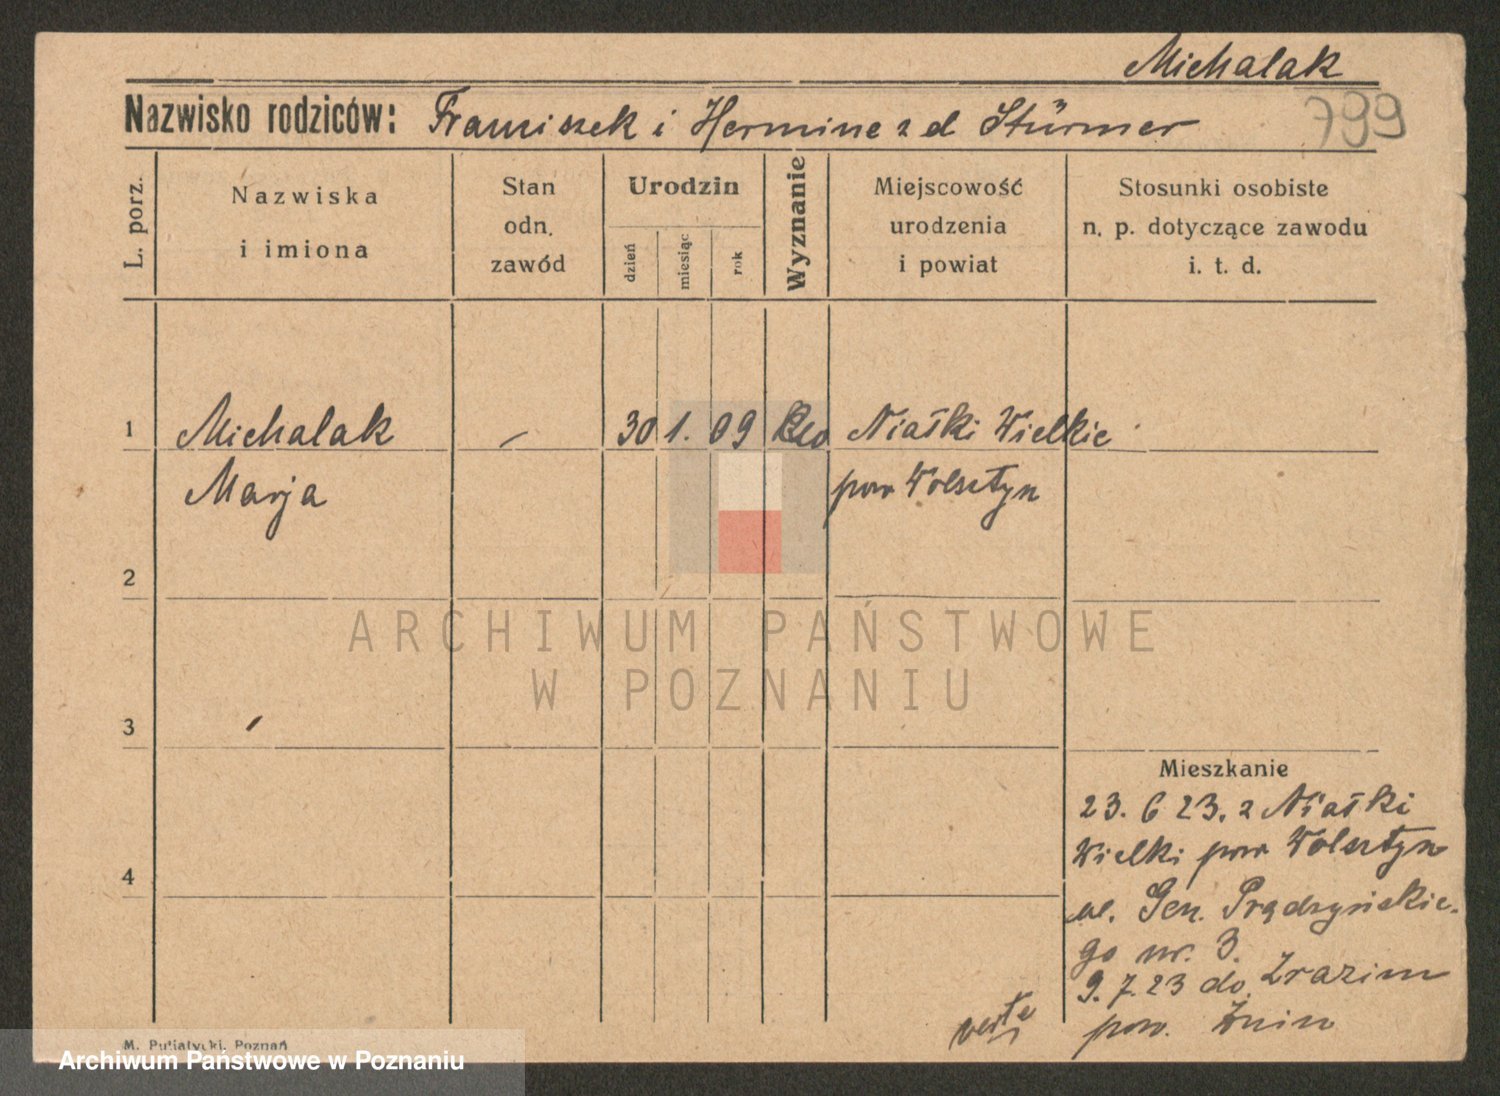 Michalak
Nazwisko rodziców: Franciszek i Hermine z d Stürmer
799
L. porz.
Nazwiska
i imiona
Stan
odn.
zawód
Urodzin
dzień
miesiąc
rok
Wyznanie
Miejscowość
urodzenia
i powiat
Stosunki osobiste
n. p. dotyczące zawodu
i. t. d.
1
Michalak - 30 1. 09 Niałki Wielkie
Marja pow Wolsztyn
2
3
4
Mieszkanie
23. 6 23. z Niałki
Wielki pow Wolsztyn
ul. Gen. Prądzyńskie-
go nr. 3.
9. 7. 23 do Zrazim
pow. Żnin
verte
M. Putiatycki, Poznań
ARCHIWUM PAŃSTWOWE
W POZNANIU
Archiwum Państwowe w Poznaniu